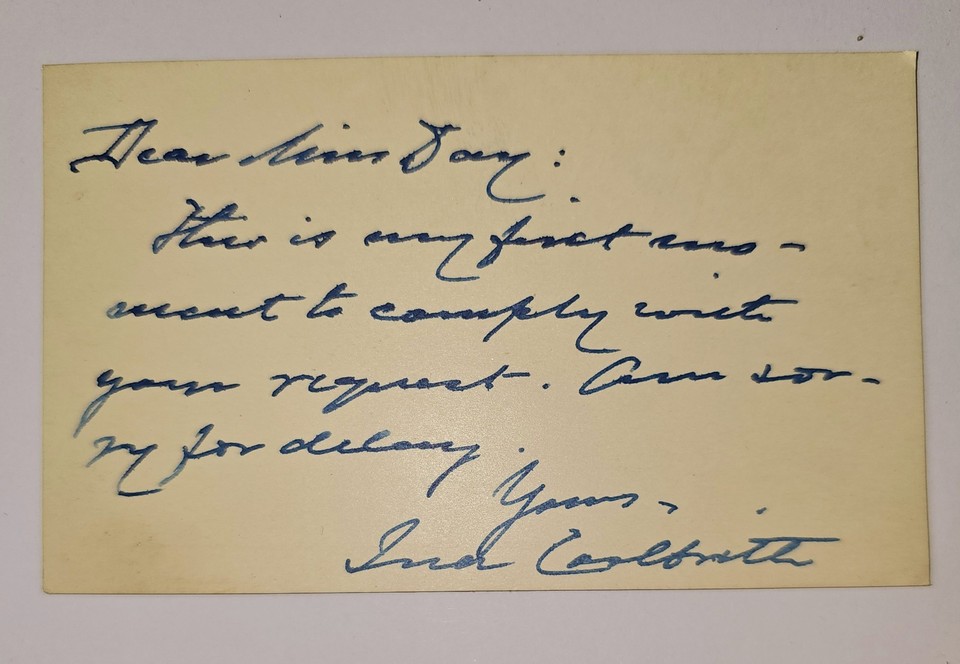 Dear Miss Day:
This is my first mo-
ment to comply with
your request. Am sor-
ry for delay.
Yours,
Ina Coolbrith